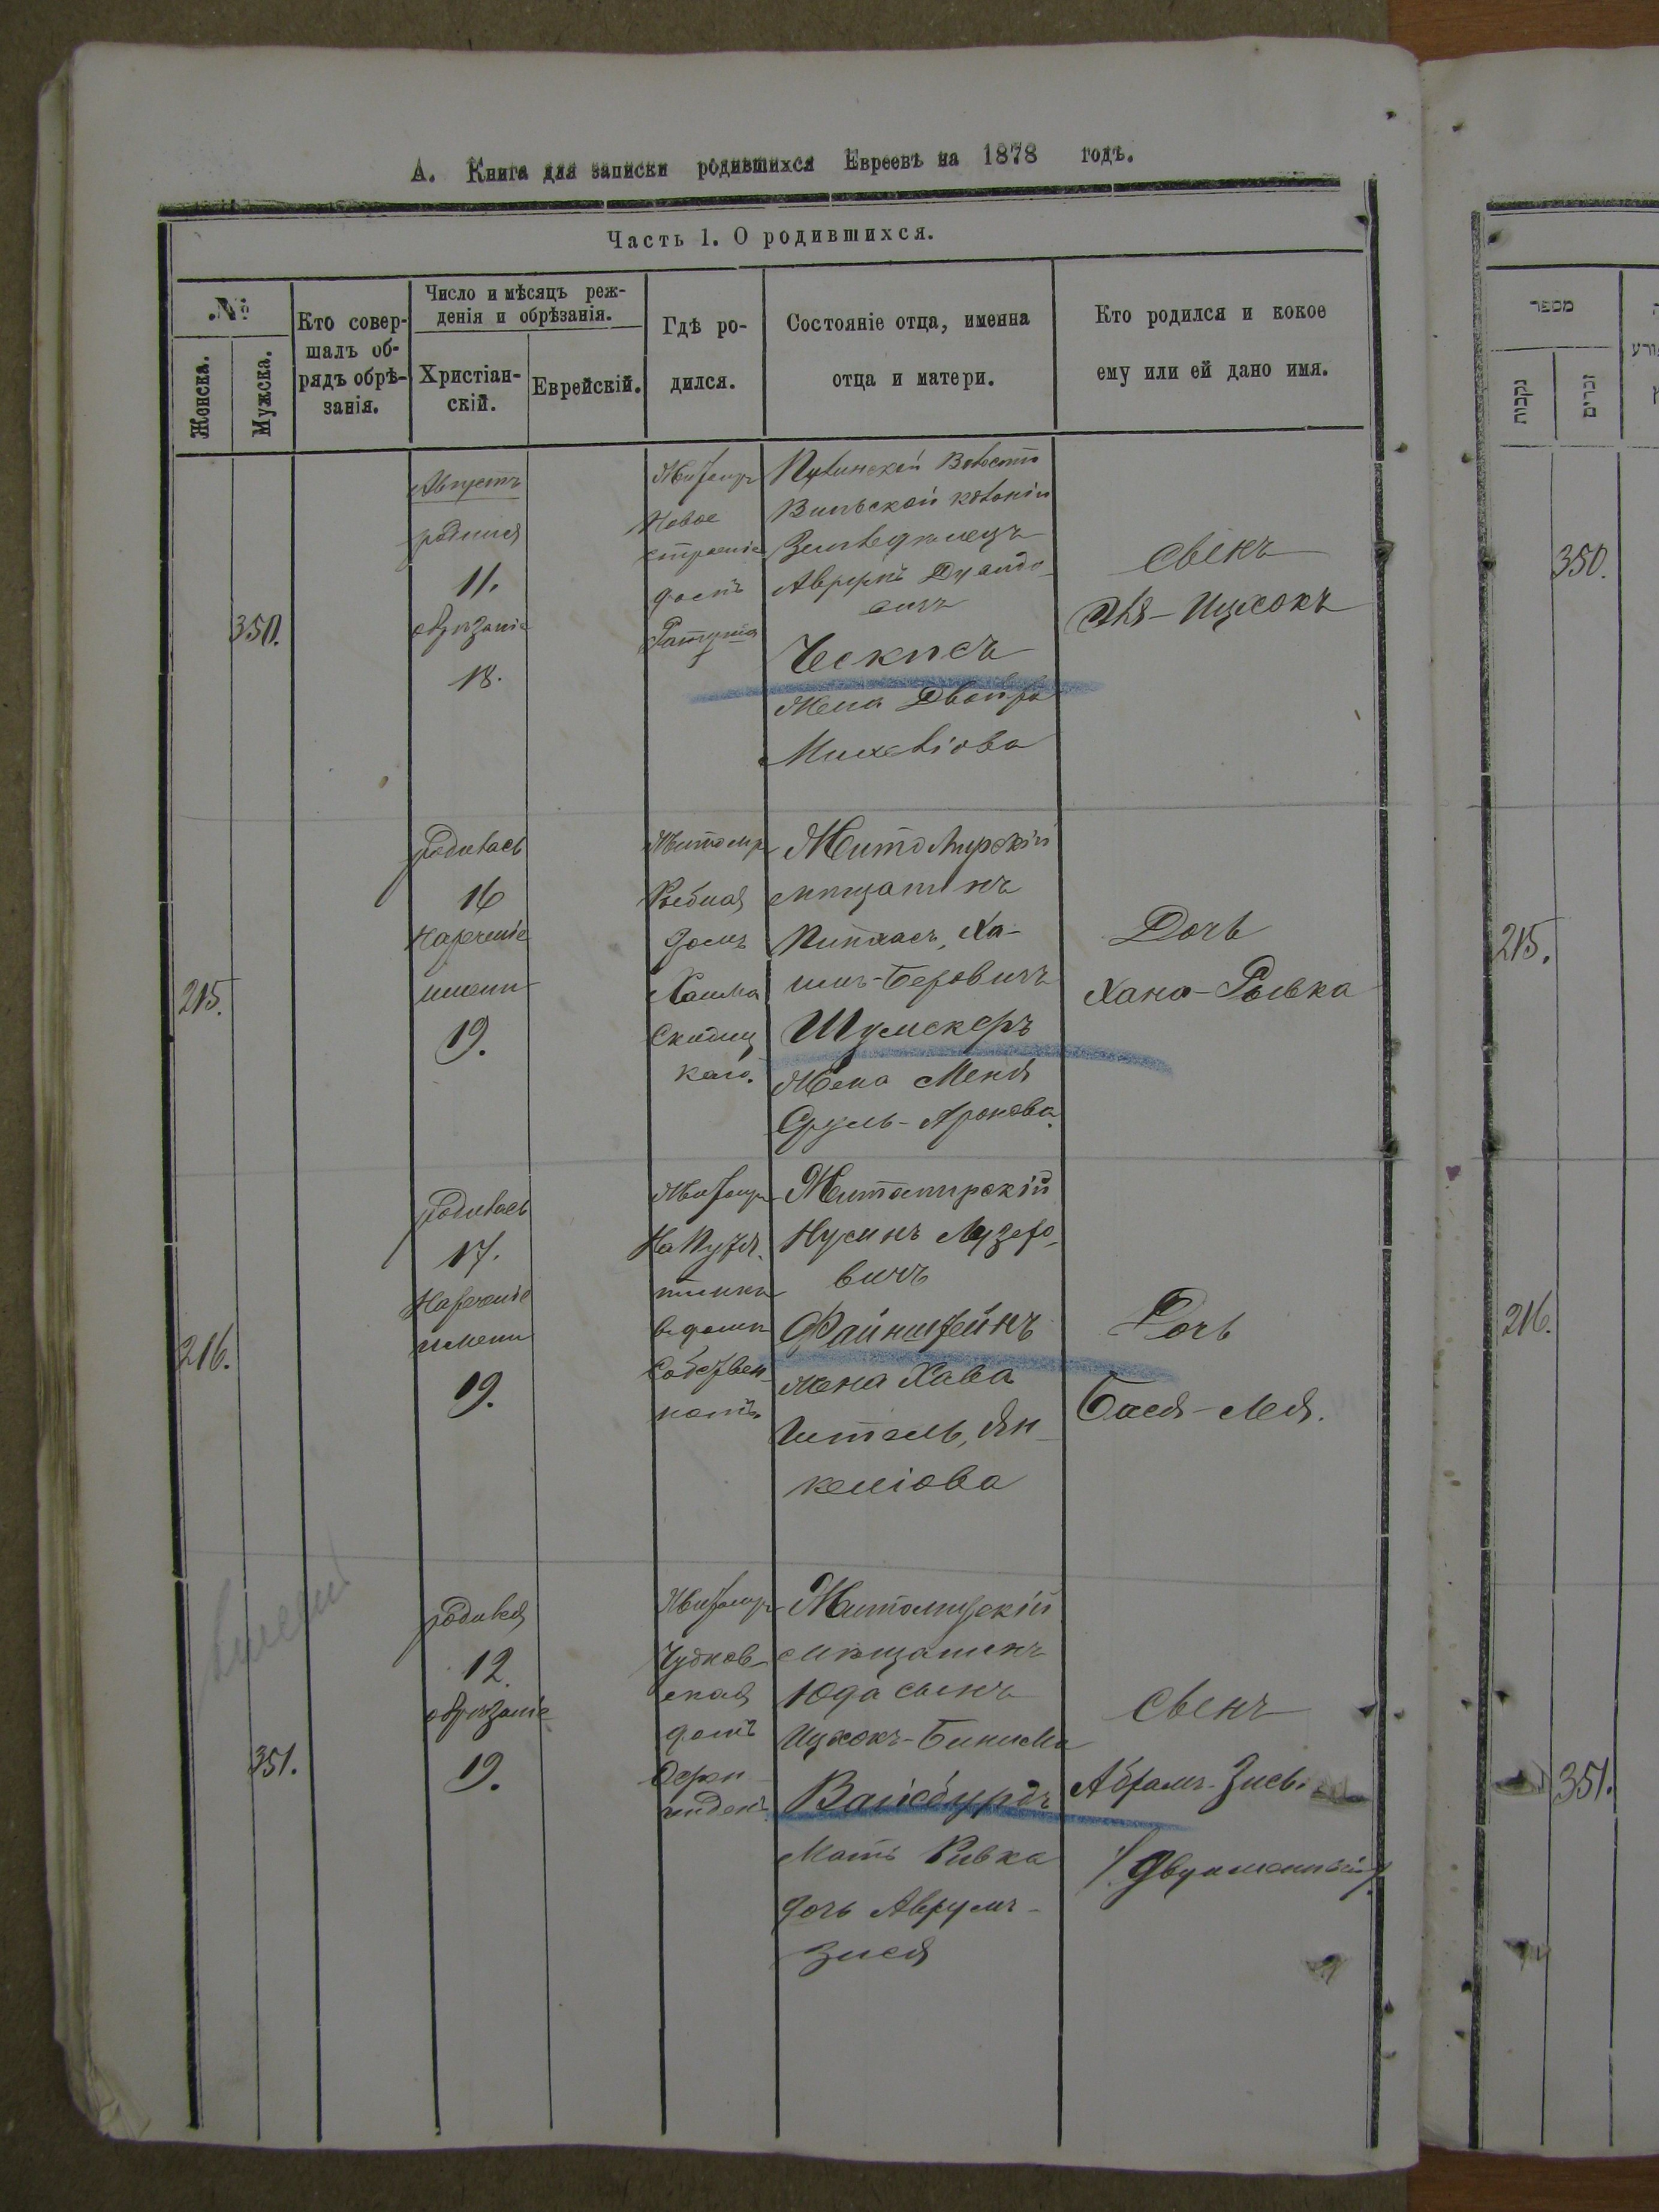 А. Книга для записки родившихся Евреевъ на 1878 годъ.
Часть 1. О родившихся.
№
Женска.
Мужска.
Кто совер-
шалъ об-
рядъ обрѣ-
занія.
Число и мѣсяцъ реж-
денія и обрѣзанія.
Христіан-
скій.
Еврейскій.
Гдѣ ро-
дился.
Состояніе отца, именна
отца и матери.
Кто родился и кокое
ему или ей дано имя.
350.
Августъ
родился
11.
обрѣзаніе
18.
Житомиръ
Новое
строеніе
домъ
Волости
колоніи
Земледѣлецъ
Ческисъ
Жена Двойра
Михелiова
Сынъ
Ицхокъ
215.
родилась
16
Нареченіе
имени
19.
Житомиръ
Рыбная
домъ
Хаима
каго.
Житомирскій
мѣщанинъ
Пинхасъ, Ха-
имъ-Беровичъ
Шумскеръ
Жена Меня
Сруль-Аронова.
Дочь
Хана-Рывка
216.
родилась
17.
Нареченіе
имени
19.
Житомиръ
На Путя-
тинка
въ домѣ
Собствен-
номъ
Житомирскій
Нусинъ Лузеро-
вичъ
Файнштейнъ
жена Хава
Ителъ, Ян-
келіова
Дочь
Бася-Лея.
351.
родился
12.
обрѣзаніе
19.
Житомиръ
Чудновс-
кая
домъ
Житомирскій
мѣщанинъ
Юда сынъ
Ицхокъ-Бинима
Вайсбурдъ
Мать Ривка
дочь Аврумъ-
Зися
Сынъ
Абрамъ-Зись
/.двуименный/.
מספר
נקבות
זכרים
350.
215.
216.
351.